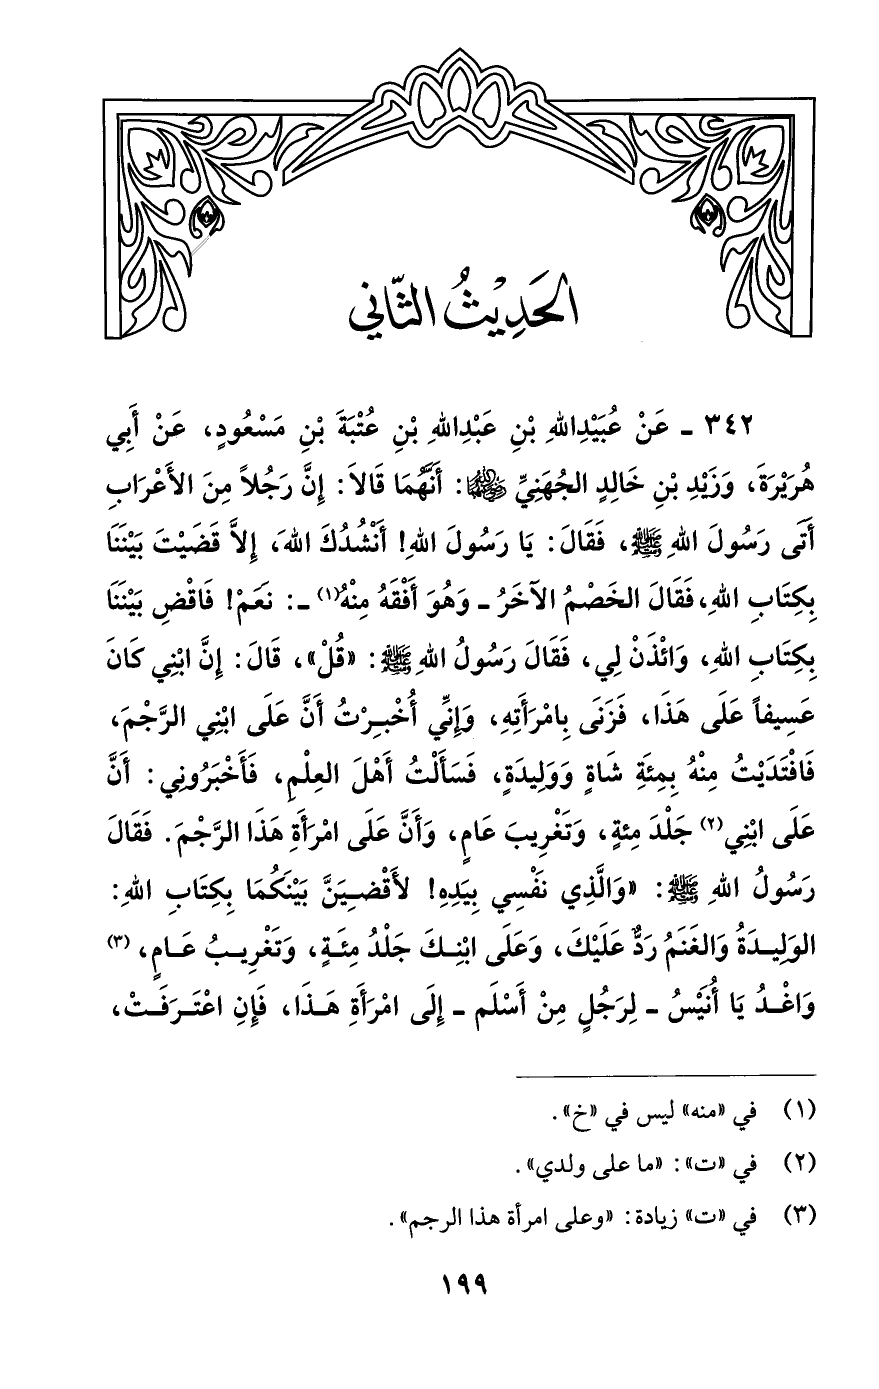 الحَدِيْثُ الثَّاني
٣٤٢ ـ عَنْ عُبَيْدِاللهِ بْنِ عَبْدِاللهِ بْنِ عُتْبَةَ بْنِ مَسْعُودٍ، عَنْ أَبِي
هُرَيْرَةَ، وَزَيْدِ بْنِ خَالِدٍ الجُهَنِيِّ ﵄: أَنَّهُمَا قَالاَ: إِنَّ رَجُلاً مِنَ الأَعْرَابِ
أَتَى رَسُولَ اللهِ ﷺ، فَقَالَ: يَا رَسُولَ اللهِ! أَنْشُدُكَ اللهَ، إِلاَّ قَضَيْتَ بَيْنَنَا
بِكِتَابِ اللهِ، فَقَالَ الخَصْمُ الآخَرُ ـ وَهُوَ أَفْقَهُ مِنْهُ(١) ـ: نَعَمْ! فَاقْضِ بَيْنَنَا
بِكِتَابِ اللهِ، وَائْذَنْ لِي، فَقَالَ رَسُولُ اللهِ ﷺ: «قُلْ»، قَالَ: إِنَّ ابْنِي كَانَ
عَسِيفاً عَلَى هَذَا، فَزَنَى بِامْرَأَتِهِ، وَإِنِّي أُخْبِرْتُ أَنَّ عَلَى ابْنِي الرَّجْمَ،
فَافْتَدَيْتُ مِنْهُ بِمِئَةِ شَاةٍ وَوَلِيدَةٍ، فَسَأَلْتُ أَهْلَ العِلْمِ، فَأَخْبَرُونِي: أَنَّ
عَلَى ابْنِي(٢) جَلْدَ مِئَةٍ، وَتَغْرِيبَ عَامٍ، وَأَنَّ عَلَى امْرَأَةِ هَذَا الرَّجْمَ. فَقَالَ
رَسُولُ اللهِ ﷺ: «وَالَّذِي نَفْسِي بِيَدِهِ! لأَقْضِيَنَّ بَيْنَكُمَا بِكِتَابِ اللهِ:
الوَلِيدَةُ وَالغَنَمُ رَدٌّ عَلَيْكَ، وَعَلَى ابْنِكَ جَلْدُ مِئَةٍ، وَتَغْرِيبُ عَامٍ،(٣)
وَاغْدُ يَا أُنَيْسُ ـ لِرَجُلٍ مِنْ أَسْلَم ـ إِلَى امْرَأَةِ هَذَا، فَإِنِ اعْتَرَفَتْ،
(١) في «منه» ليس في «خ».
(٢) في «ت»: «ما على ولدي».
(٣) في «ت» زيادة: «وعلى امرأة هذا الرجم».
١٩٩